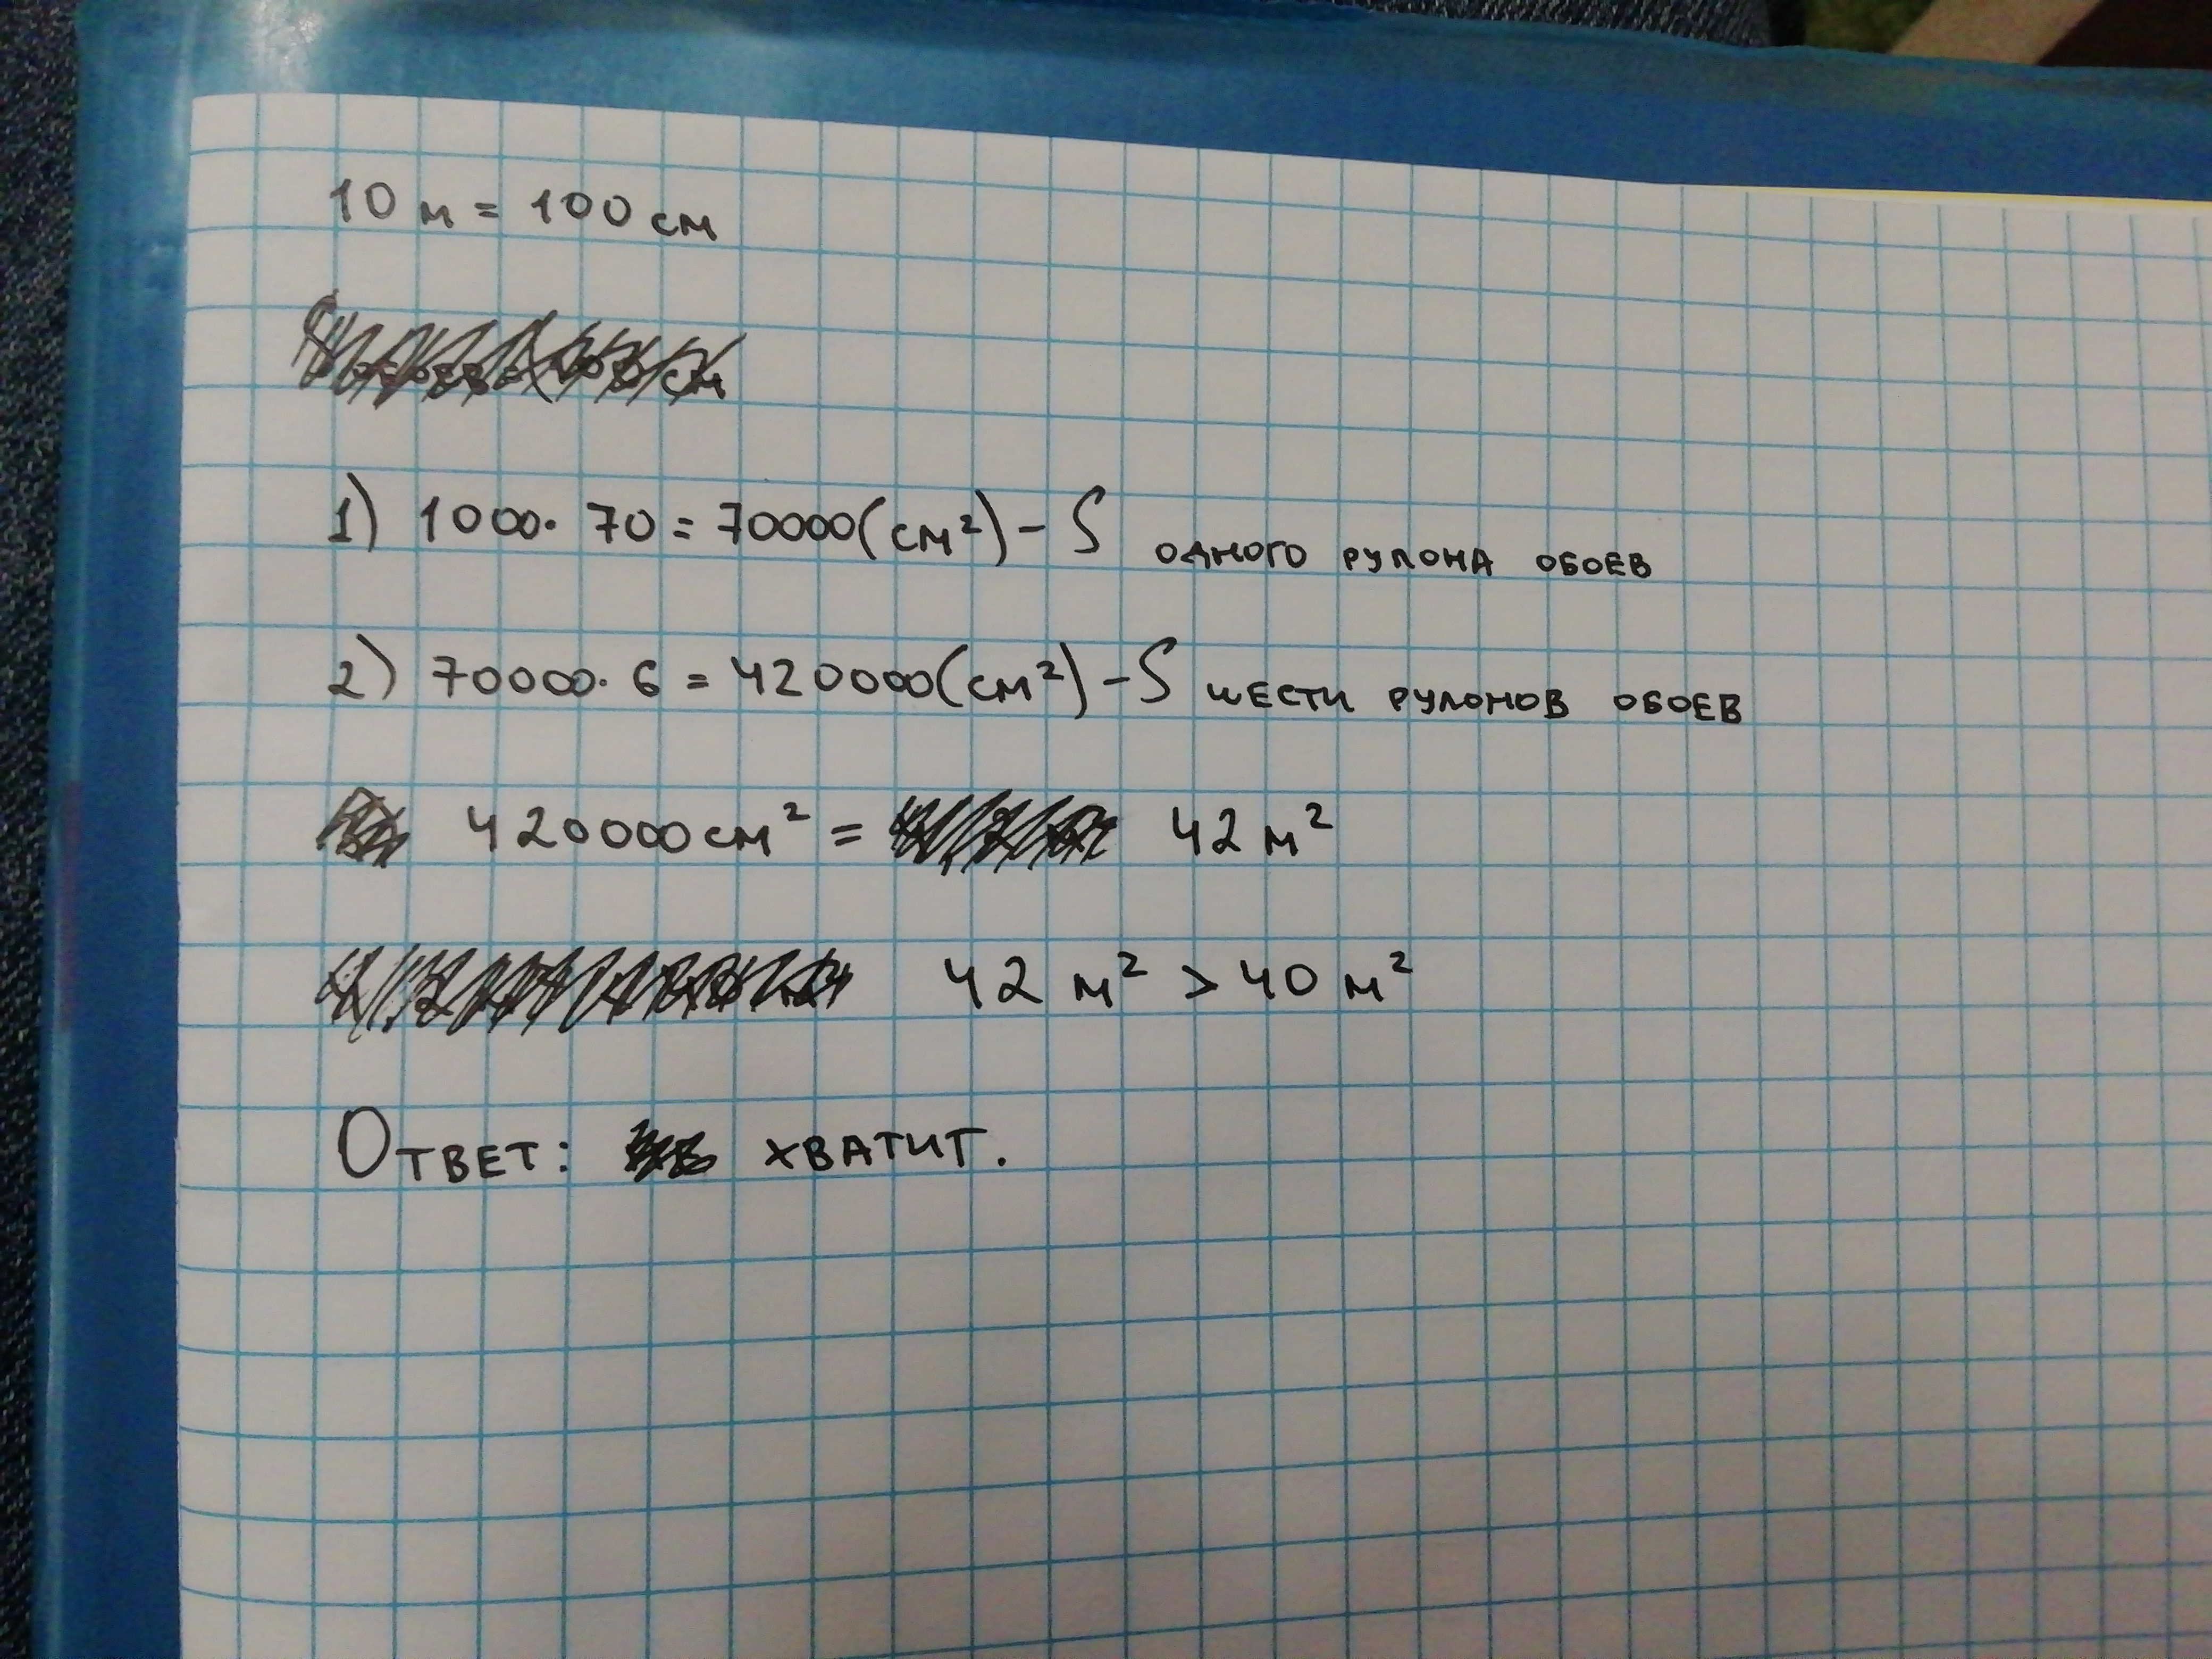 10 м = 100 см
1) 1000 · 70 = 70000 (см²) - S одного рулона обоев
2) 70000 · 6 = 420000 (см²) - S шести рулонов обоев
420000 см² = 42 м²
42 м² > 40 м²
Ответ: хватит.